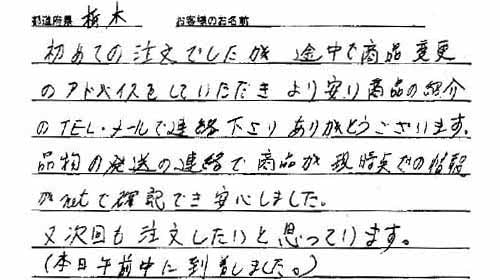 都道府県 栃木 お客様のお名前
初めての注文でしたが 途中で商品変更
のアドバイスをしていただき より安い商品の紹介
のTEL・メールで連絡下さり ありがとうございます。
品物の発送の連絡で 商品が 現時点での情報
がnetで確認でき 安心しました。
又次回も 注文したいと 思っています。
(本日午前中に 到着しました。)